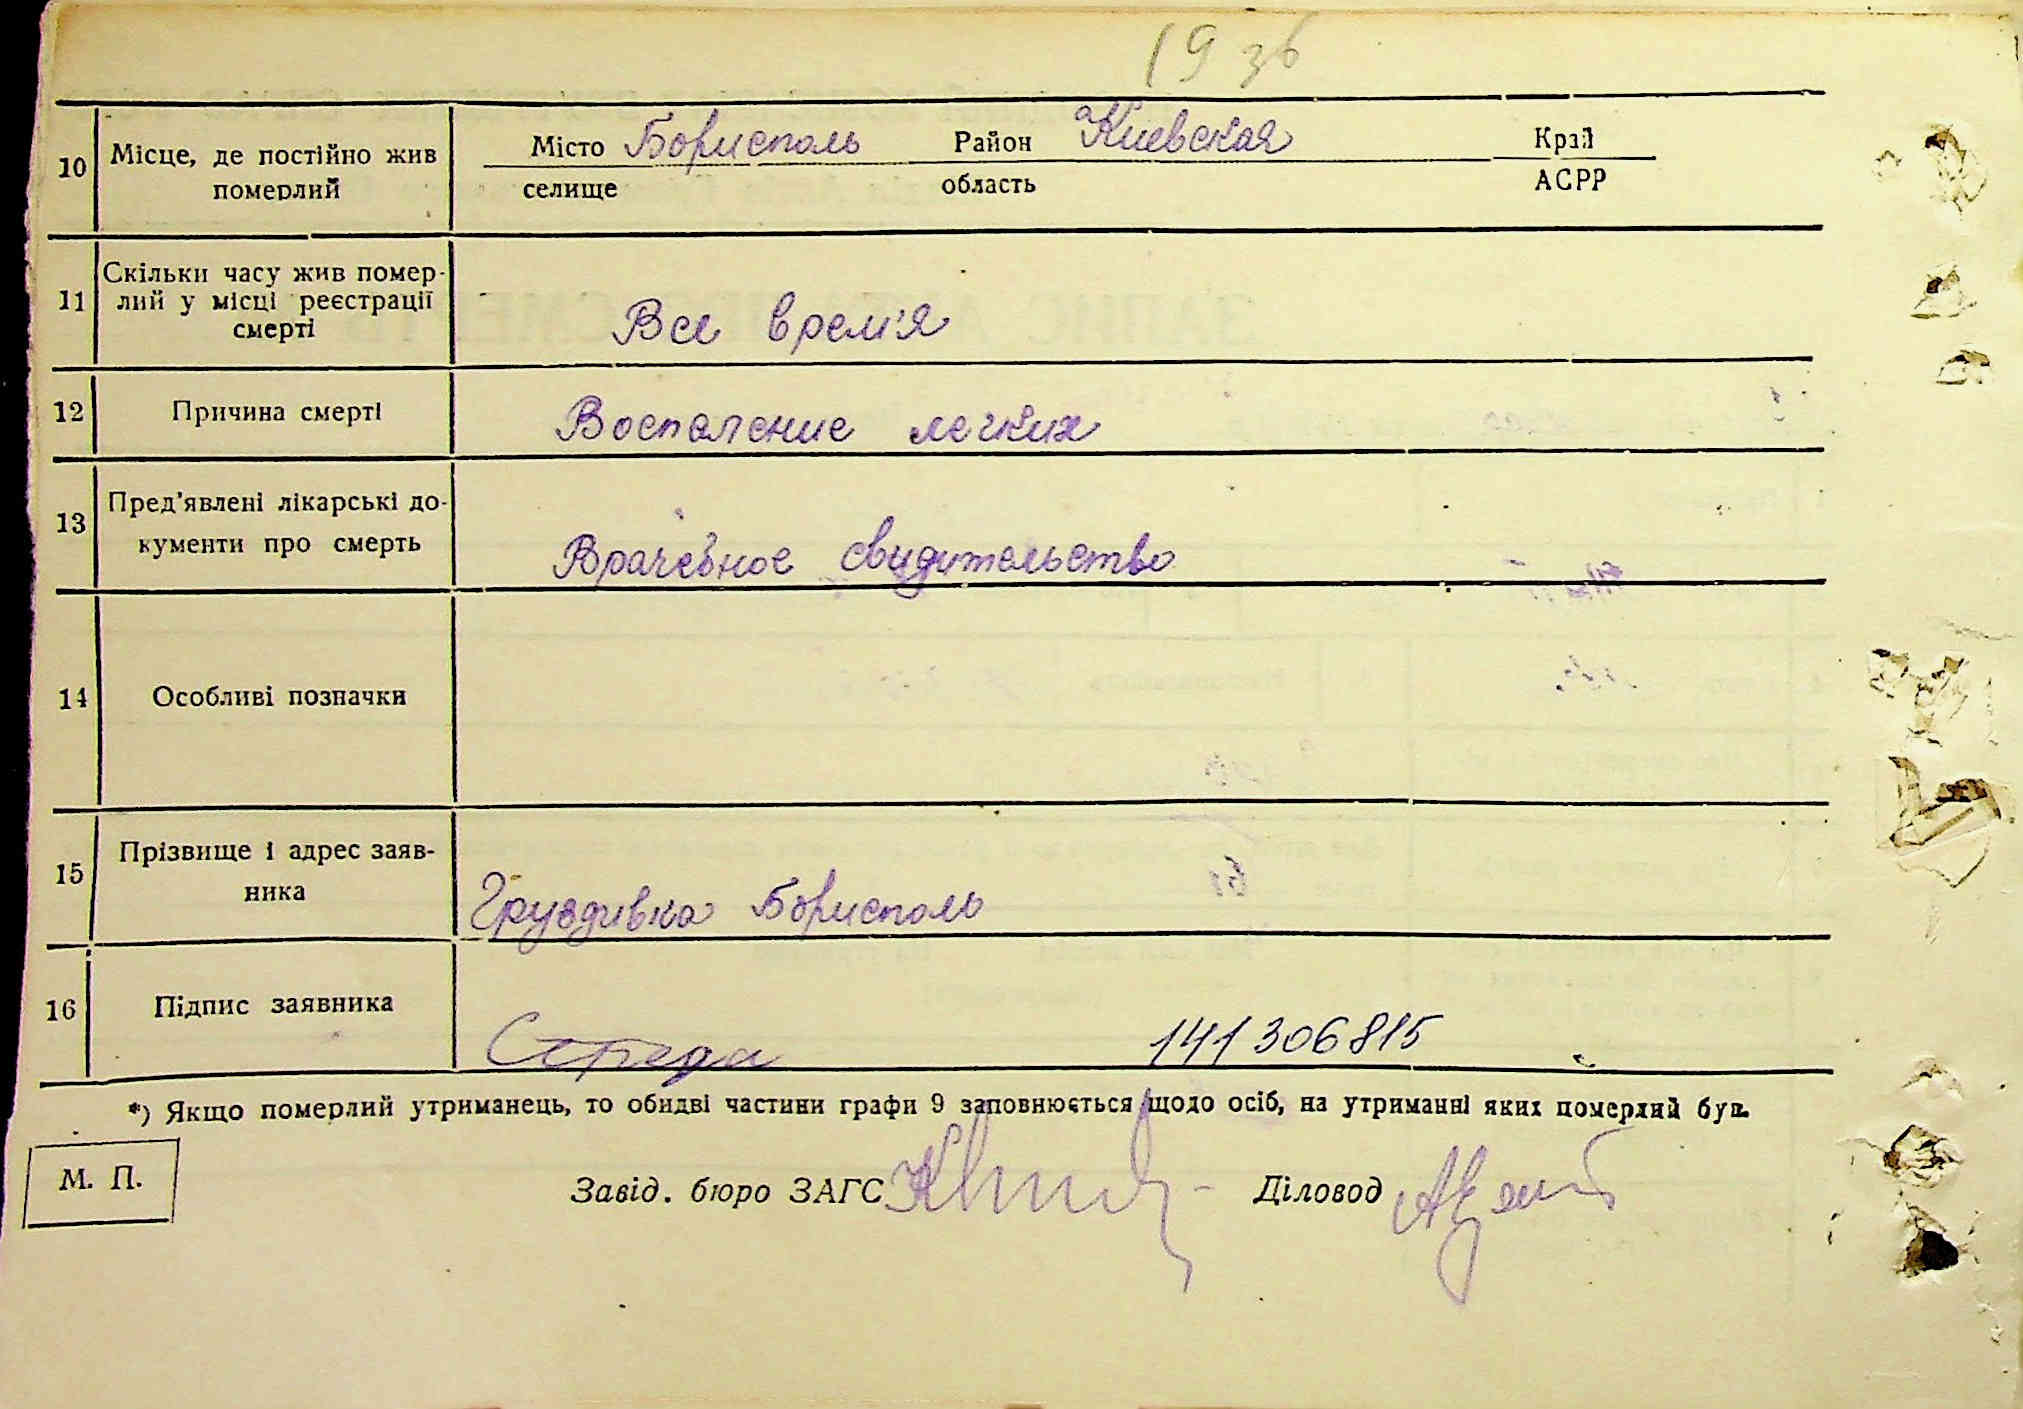 19 36
10 Місце, де постійно жив померлий
Місто Борисполь Район Киевская Край
селище область АСРР
11 Скільки часу жив помер-
лий у місці реєстрації
смерті
Все врем'я
12 Причина смерті Воспаление легких
13 Пред'явлені лікарські до-
кументи про смерть
Врачебное свидительство
14 Особливі позначки
15 Прізвище і адрес заяв-
ника
Груздивка Борисполь
16 Підпис заявника
Середа 141306815
*) Якщо померлий утриманець, то обидві частини графи 9 заповнюється щодо осіб, на утриманні яких померлий був.
М. П.
Завід. бюро ЗАГС Діловод